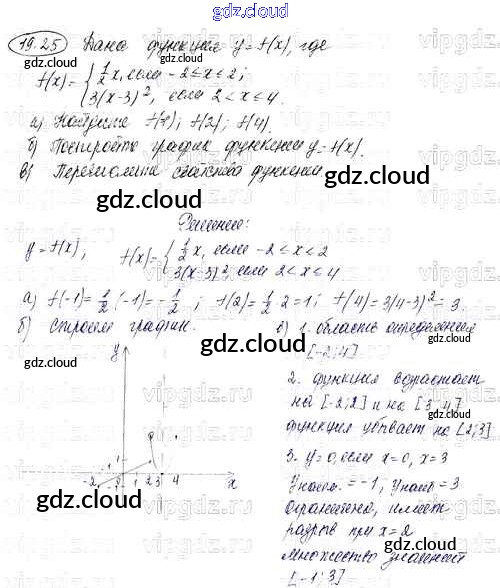 gdz.cloud
19.25 Дана функция y=f(x), где
f(x)= { 1/2 x, если -2≤x≤2;
3(x-3)², если 2<x≤4.
а) Найдите f(-1); f(2); f(4).
б) Постройте график функции y=f(x).
в) Перечислите свойства функции
gdz.cloud
gdz.cloud
Решение:
y=f(x), f(x)= { 1/2 x, если -2≤x≤2
3(x-3)², если 2<x≤4
а) f(-1)= 1/2 · (-1)= - 1/2 ; f(2)= 1/2 · 2=1; f(4)=3(4-3)²=3.
б) Строим график. в) 1. область определения
gdz.cloud
[-2;4]
gdz.cloud
y
2. функция возрастает
на [-2;2] и на [3;4]
gdz.cloud
функция убывает на [2;3]
3. y=0, если x=0, x=3
-2 -1 1 2 3 4 x
yнаим.=-1; yнаиб=3
gdz.cloud
ограниченна, имеет
разрыв при x=2
gdz.cloud
множество значений
[-1;3]
vipgdz.ru